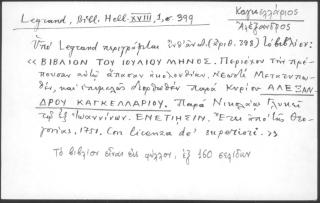 Legrand, Bibl. Hell. XVIII, 1, σ. 399
Καγκελλάριος
Ἀλέξανδρος
Ὑπὸ Legrand περιγράφεται (ἀριθ. 398) τὸ βιβλίον:
«ΒΙΒΛΙΟΝ ΤΟΥ ΙΟΥΛΙΟΥ ΜΗΝΟΣ. Περιέχον τὴν πρέ-
πουσαν αὐτῷ ἅπασαν ἀκολουθίαν. Νεωστὶ Μετατυπω-
θέν, καὶ ἐπιμελῶς διορθωθὲν παρὰ Κυρίου ΑΛΕΞΑΝ-
ΔΡΟΥ ΚΑΓΚΕΛΛΑΡΙΟΥ. Παρὰ Νικολάῳ Γλυκεῖ
τῷ ἐξ Ἰωαννίνων. ΕΝΕΤΙΗΣΙΝ. Ἔτει ἀπὸ τῆς Θεο-
γονίας, 1751. Con licenza de' superiori.»
Τὸ βιβλίον εἶναι εἰς φύλλον, ἐξ 160 σελίδων